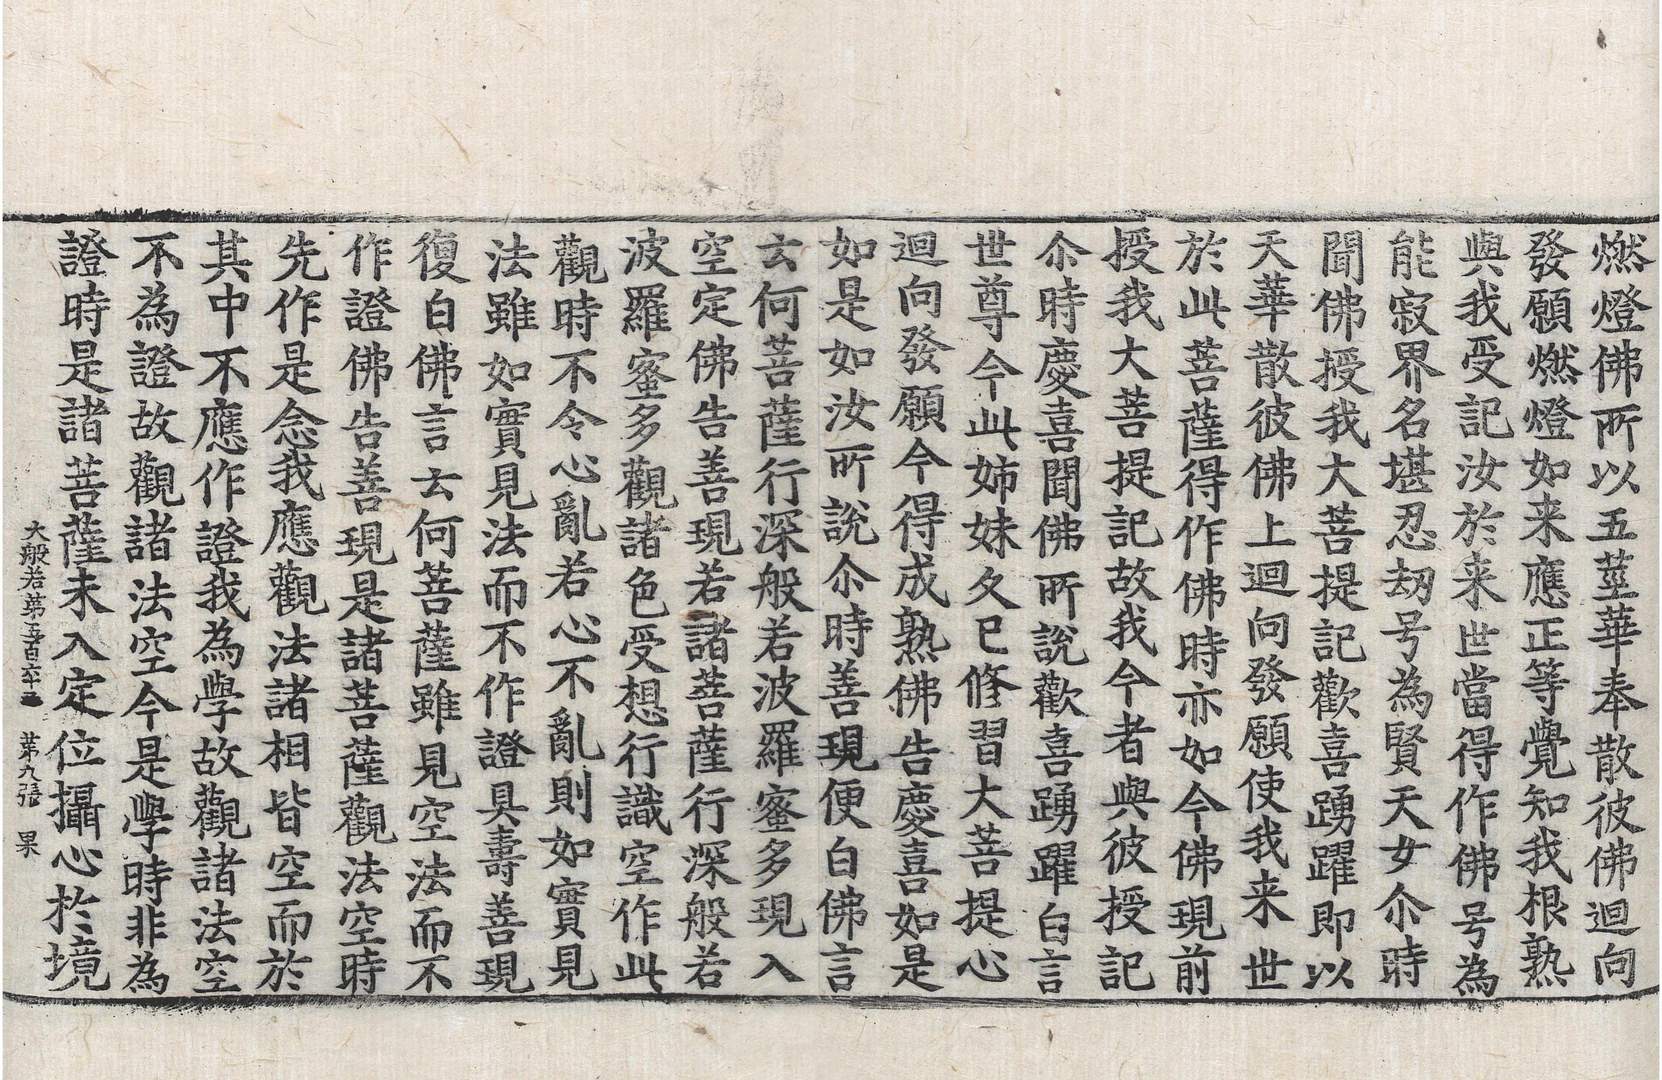 燃燈佛所以五莖華奉散彼佛迴向
發願燃燈如来應正等覺知我根熟
與我受記汝於来世當得作佛号為
能寂界名堪忍劫号為賢天女尒時
聞佛授我大菩提記歡喜踴躍即以
天華散彼佛上迴向發願使我来世
於此菩薩得作佛時亦如今佛現前
授我大菩提記故我今者與彼授記
尒時慶喜聞佛所說歡喜踴躍白言
世尊今此姊妹久已修習大菩提心
迴向發願今得成熟佛告慶喜如是
如是如汝所說尒時善現便白佛言
云何菩薩行深般若波羅蜜多現入
空定佛告善現若諸菩薩行深般若
波羅蜜多觀諸色受想行識空作此
觀時不令心亂若心不亂則如實見
法雖如實見法而不作證具壽善現
復白佛言云何菩薩雖見空法而不
作證佛告善現是諸菩薩觀法空時
先作是念我應觀法諸相皆空而於
其中不應作證我為學故觀諸法空
不為證故觀諸法空今是學時非為
證時是諸菩薩未入定位攝心於境
大般若第五百六十二 第九張 果